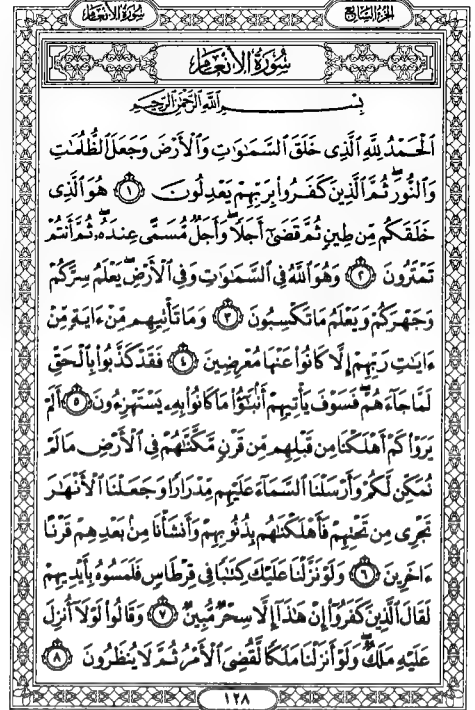 سُورَةُ الأَنْعَامِ الجُزْءُ السَّابِعُ
سُورَةُ الأَنْعَامِ
بِسْمِ اللَّهِ الرَّحْمَٰنِ الرَّحِيمِ
ٱلْحَمْدُ لِلَّهِ ٱلَّذِى خَلَقَ ٱلسَّمَٰوَٰتِ وَٱلْأَرْضَ وَجَعَلَ ٱلظُّلُمَٰتِ
وَٱلنُّورَ ۖ ثُمَّ ٱلَّذِينَ كَفَرُوا۟ بِرَبِّهِمْ يَعْدِلُونَ ١ هُوَ ٱلَّذِى
خَلَقَكُم مِّن طِينٍ ثُمَّ قَضَىٰٓ أَجَلًا ۖ وَأَجَلٌ مُّسَمًّى عِندَهُۥ ۖ ثُمَّ أَنتُمْ
تَمْتَرُونَ ٢ وَهُوَ ٱللَّهُ فِى ٱلسَّمَٰوَٰتِ وَفِى ٱلْأَرْضِ ۖ يَعْلَمُ سِرَّكُمْ
وَجَهْرَكُمْ وَيَعْلَمُ مَا تَكْسِبُونَ ٣ وَمَا تَأْتِيهِم مِّنْ ءَايَةٍ مِّنْ
ءَايَٰتِ رَبِّهِمْ إِلَّا كَانُوا۟ عَنْهَا مُعْرِضِينَ ٤ فَقَدْ كَذَّبُوا۟ بِٱلْحَقِّ
لَمَّا جَآءَهُمْ ۖ فَسَوْفَ يَأْتِيهِمْ أَنۢبَٰٓؤُا۟ مَا كَانُوا۟ بِهِۦ يَسْتَهْزِءُونَ ٥ أَلَمْ
يَرَوْا۟ كَمْ أَهْلَكْنَا مِن قَبْلِهِم مِّن قَرْنٍ مَّكَّنَّٰهُمْ فِى ٱلْأَرْضِ مَا لَمْ
نُمَكِّن لَّكُمْ وَأَرْسَلْنَا ٱلسَّمَآءَ عَلَيْهِم مِّدْرَارًا وَجَعَلْنَا ٱلْأَنْهَٰرَ
تَجْرِى مِن تَحْتِهِمْ فَأَهْلَكْنَٰهُم بِذُنُوبِهِمْ وَأَنشَأْنَا مِنۢ بَعْدِهِمْ قَرْنًا
ءَاخَرِينَ ٦ وَلَوْ نَزَّلْنَا عَلَيْكَ كِتَٰبًا فِى قِرْطَاسٍ فَلَمَسُوهُ بِأَيْدِيهِمْ
لَقَالَ ٱلَّذِينَ كَفَرُوٓا۟ إِنْ هَٰذَآ إِلَّا سِحْرٌ مُّبِينٌ ٧ وَقَالُوا۟ لَوْلَآ أُنزِلَ
عَلَيْهِ مَلَكٌ ۖ وَلَوْ أَنزَلْنَا مَلَكًا لَّقُضِىَ ٱلْأَمْرُ ثُمَّ لَا يُنظَرُونَ ٨
١٢٨